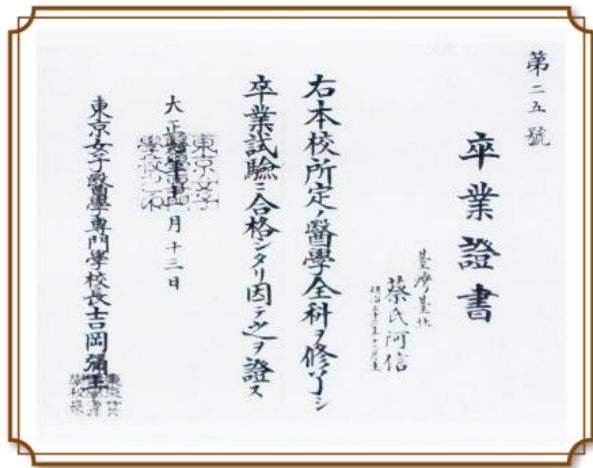 第二五號
卒業證書
臺灣臺北
蔡氏阿信
右本校所定ノ醫學全科ヲ修了シ
卒業試驗ニ合格シタリ因テ之ヲ證ス
大正 月十三日
東京女子醫學專門學校長吉岡彌生